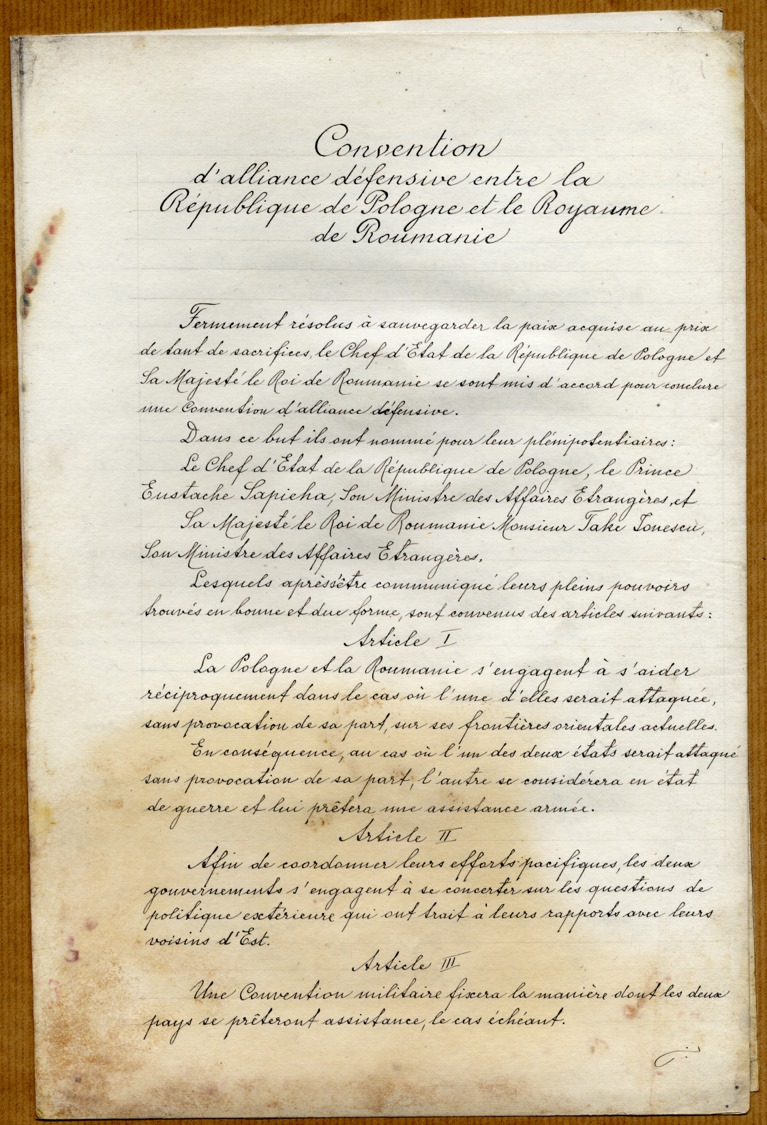 Convention
d'alliance défensive entre la
République de Pologne et le Royaume
de Roumanie
Fermement résolus à sauvegarder la paix acquise au prix
de tant de sacrifices, le Chef d'Etat de la République de Pologne et
Sa Majesté le Roi de Roumanie se sont mis d'accord pour conclure
une Convention d'alliance défensive.
Dans ce but ils ont nommé pour leur plénipotentiaires:
Le Chef d'Etat de la République de Pologne, le Prince
Eustache Sapieha, Son Ministre des Affaires Etrangères, et
Sa Majesté le Roi de Roumanie Monsieur Take Ionescu,
Son Ministre des Affaires Etrangères.
Lesquels après s'être communiqué leurs pleins pouvoirs
trouvés en bonne et due forme, sont convenus des articles suivants:
Article I
La Pologne et la Roumanie s'engagent à s'aider
réciproquement dans le cas où l'une d'elles serait attaquée,
sans provocation de sa part, sur ses frontières orientales actuelles.
En conséquence, au cas où l'un des deux états serait attaqué
sans provocation de sa part, l'autre se considérera en état
de guerre et lui prêtera une assistance armée.
Article II
Afin de coordonner leurs efforts pacifiques, les deux
gouvernements s'engagent à se concerter sur les questions de
politique extérieure qui ont trait à leurs rapports avec leurs
voisins d'Est.
Article III
Une Convention militaire fixera la manière dont les deux
pays se prêteront assistance, le cas échéant.